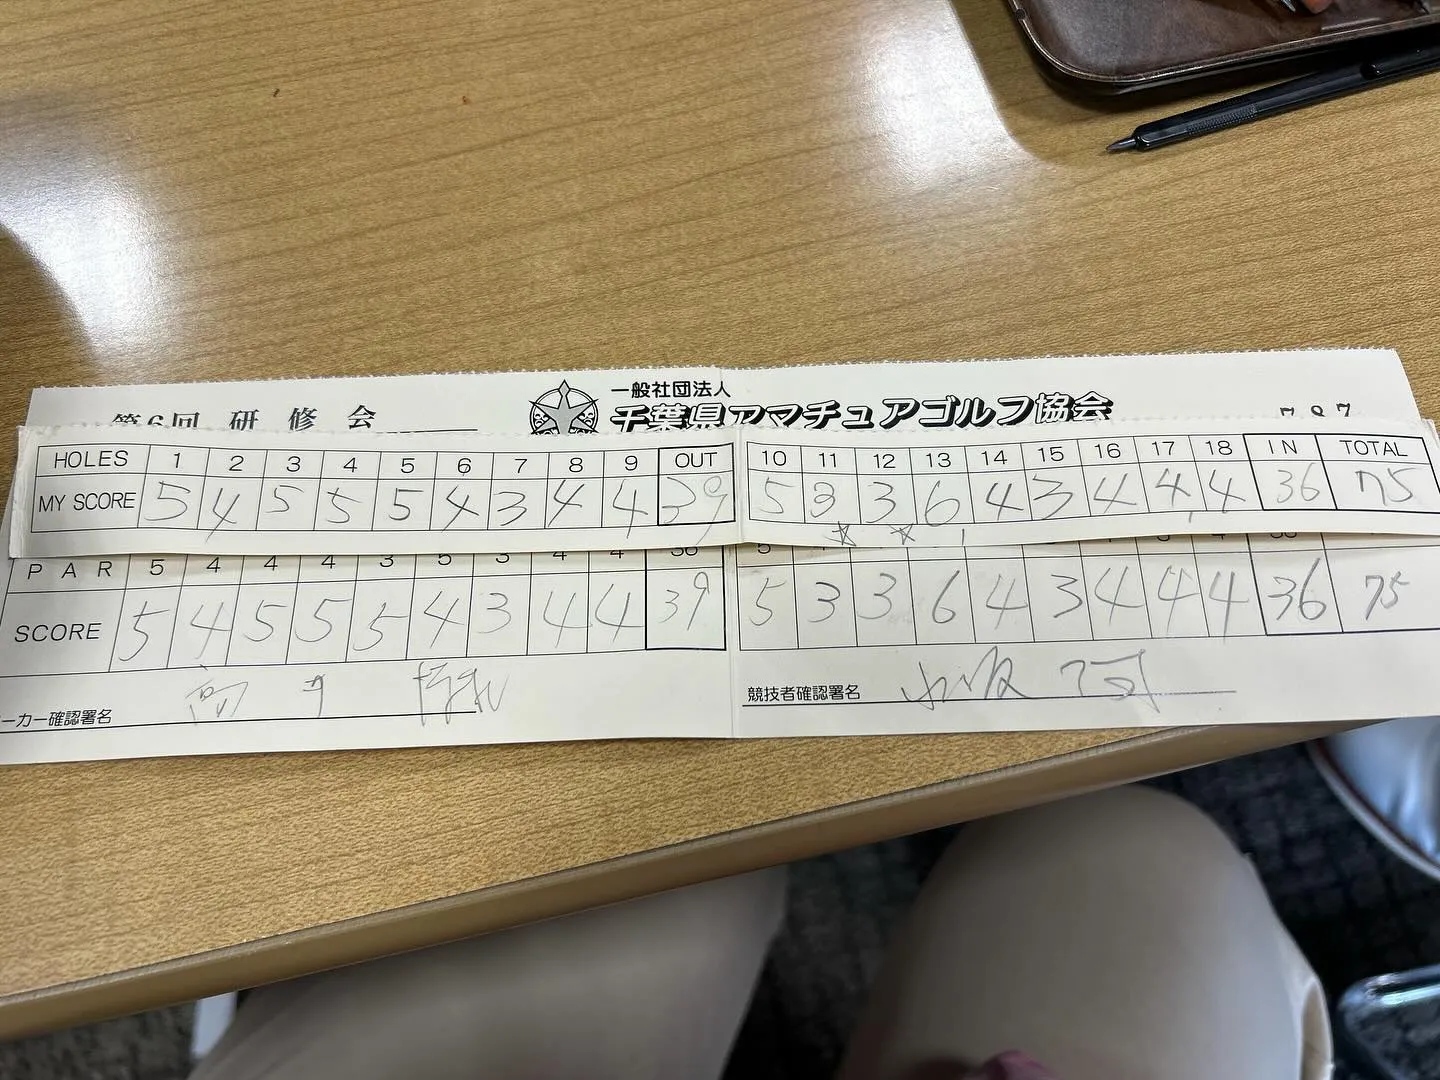 一般社団法人
第6回 研修会
千葉県アマチュアゴルフ協会
HOLES 1 2 3 4 5 6 7 8 9 OUT 10 11 12 13 14 15 16 17 18 IN TOTAL
MY SCORE 5 4 5 5 5 4 3 4 4 39 5 3 3 6 4 3 4 4 4 36 75
PAR 5 4 4 4 3 5 3 4 4 36 5
SCORE 5 4 5 5 5 4 3 4 4 39 5 3 3 6 4 3 4 4 4 36 75
ーカー確認署名
競技者確認署名